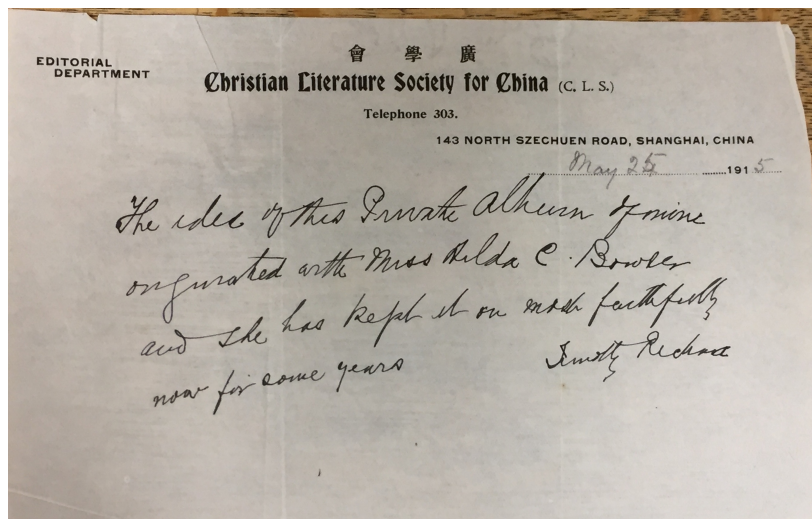 EDITORIAL
DEPARTMENT
會學廣
Christian Literature Society for China (C. L. S.)
Telephone 303.
143 NORTH SZECHUEN ROAD, SHANGHAI, CHINA
May 25 1915
The idea of this Private Album of mine
originated with Miss Hilda C. Bowser
and she has kept it on most faithfully
now for some years
Timothy Richard